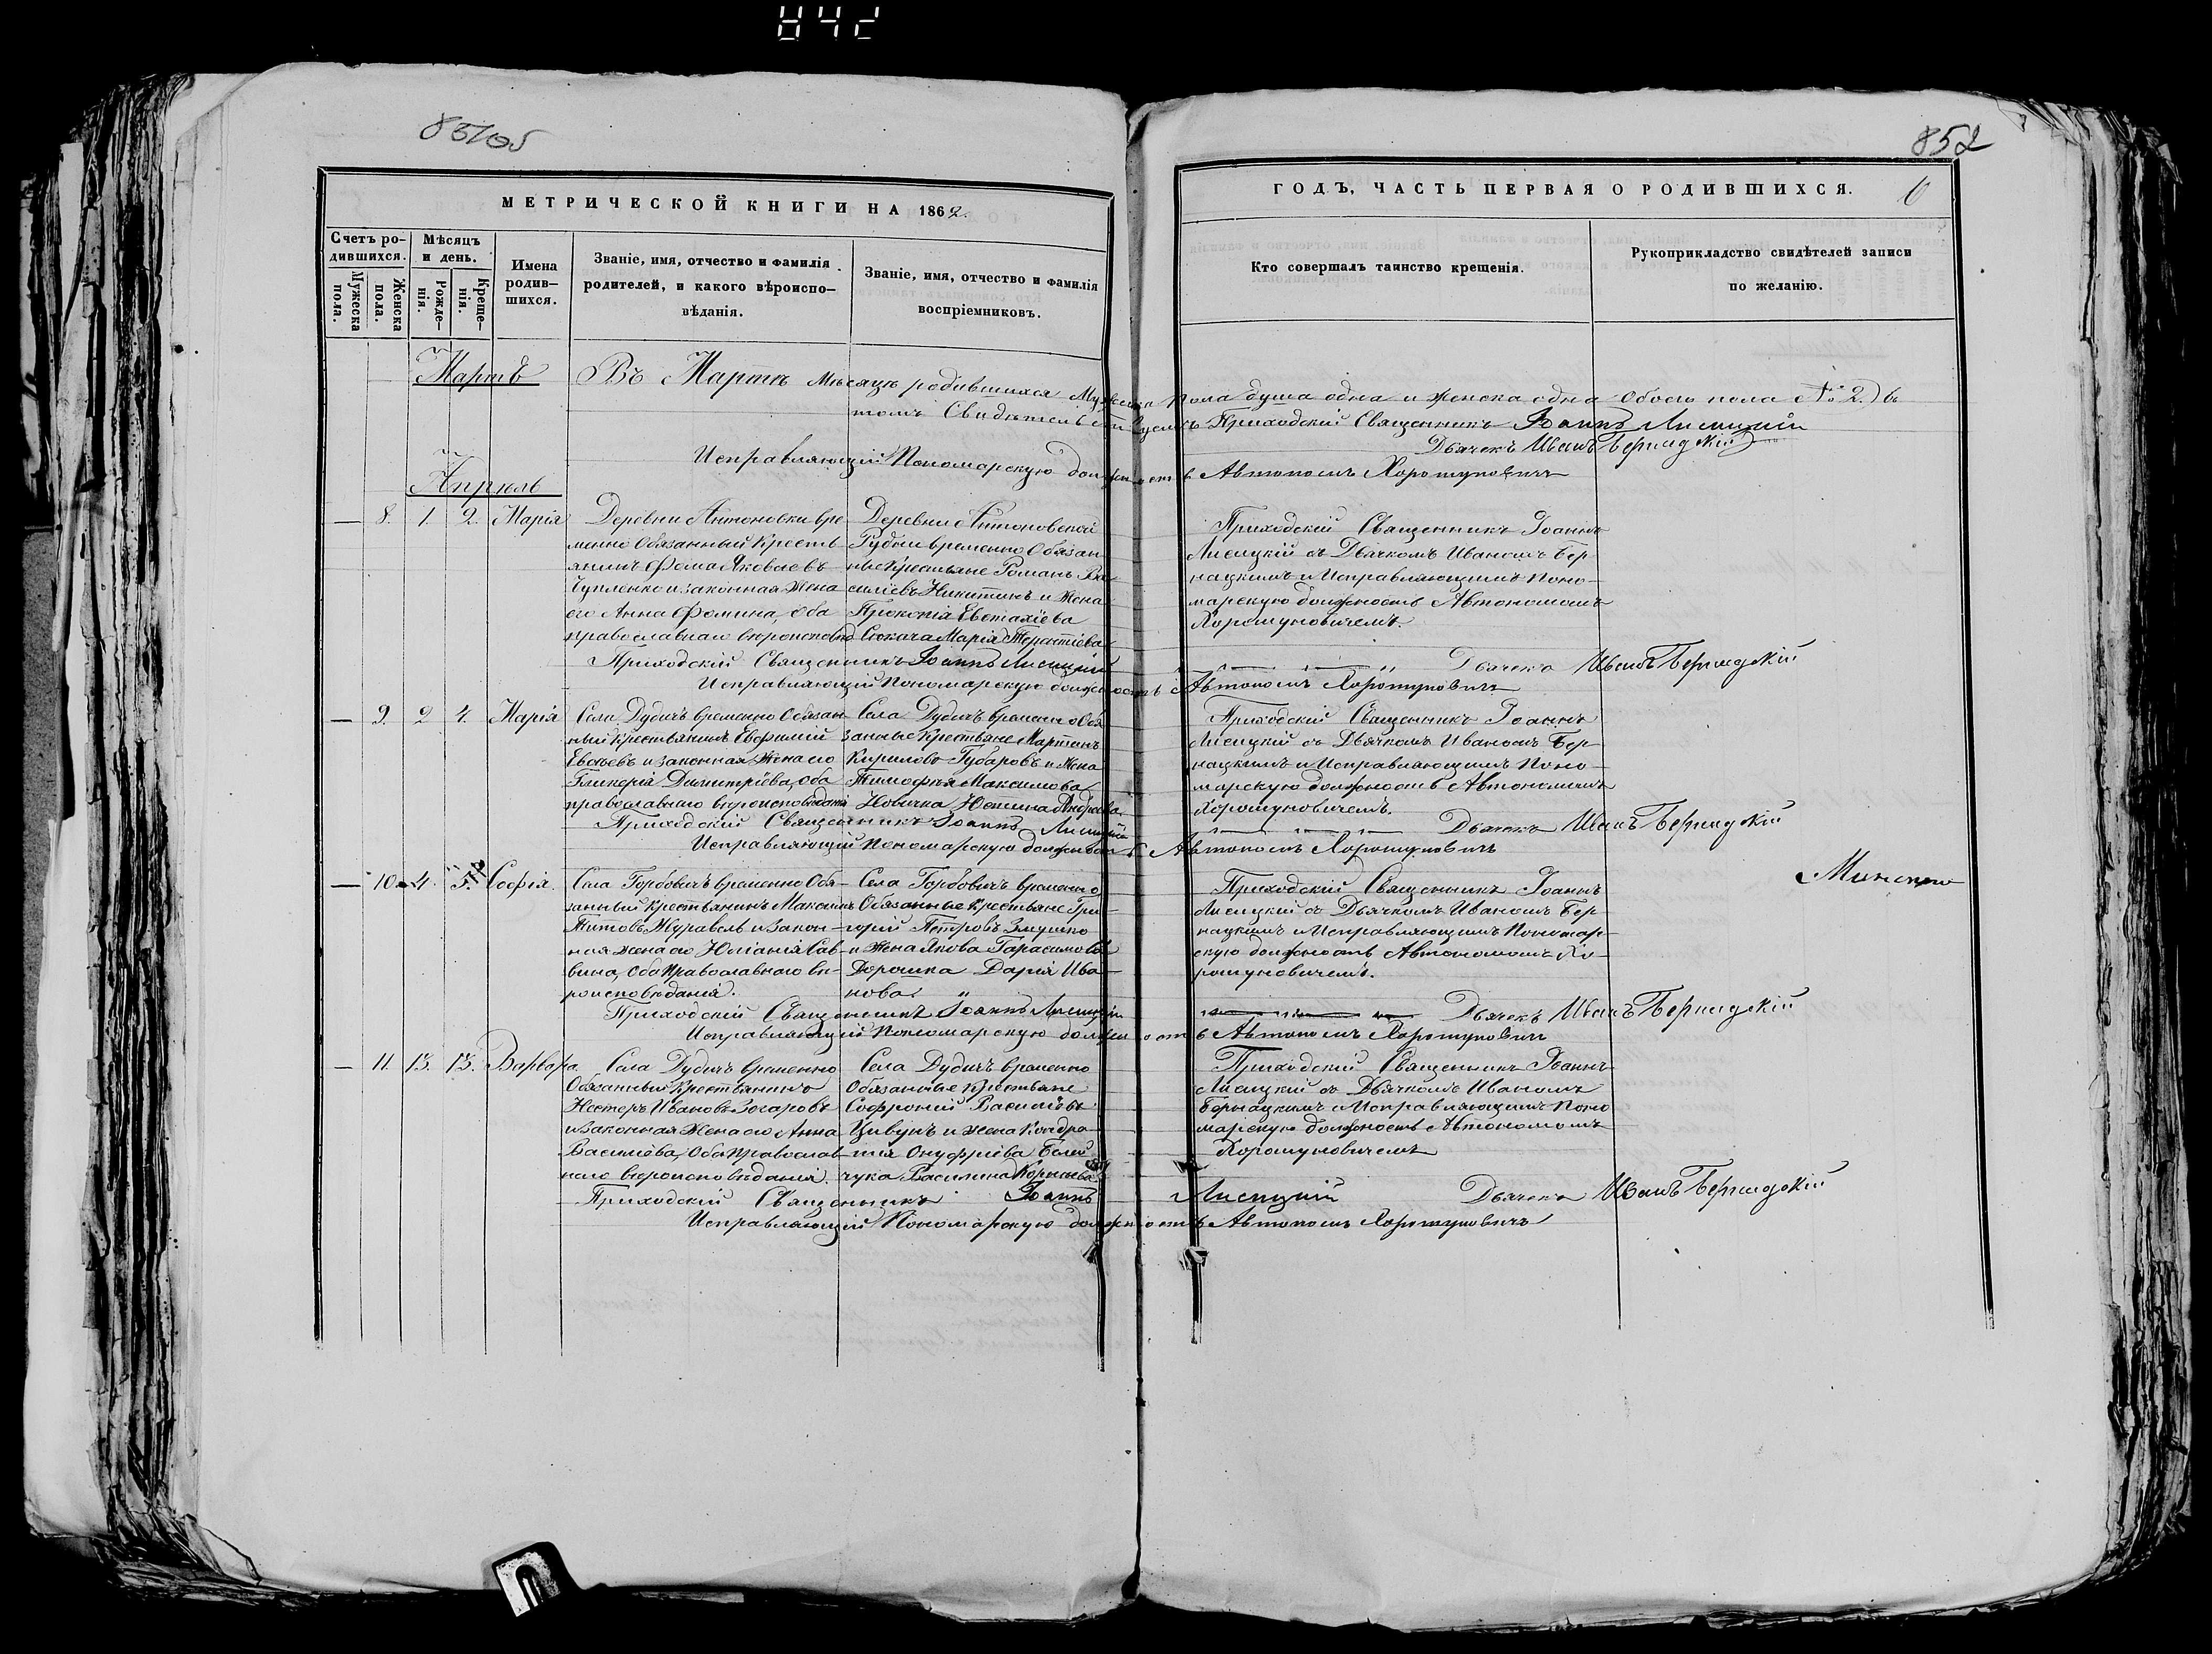 842
852
МЕТРИЧЕСКОЙ КНИГИ НА 1862.
Счетъ ро-
дившихся.
Мѣсяцъ
и день.
Мужеска
пола.
Женска
пола.
Рожде-
нія.
Креще-
нія.
Имена
родив-
шихся.
Званіе, имя, отчество и фамилія
родителей, и какого вѣроиспо-
вѣданія.
Званіе, имя, отчество и фамилія
воспріемниковъ.
ГОДЪ, ЧАСТЬ ПЕРВАЯ О РОДИВШИХСЯ.
6
Кто совершалъ таинство крещенія.
Рукоприкладство свидѣтелей записи
по желанію.
Мартъ
Въ Мартѣ мѣсяцѣ родившихся Мужеска пола душа одна и женска одна обоего пола № 2.) въ
томъ Свидѣтельствуемъ Приходскій Священникъ Іоаннъ Лисицкій
Дьячекъ Иванъ Бернадскій
Исправляющій Пономарскую должность Автономъ Хорошуновичъ
Апрѣль
— 8. 1. 2. Марія
Деревни Антоновки вре
менно Обязанный Кресть
янинъ Фома Яковлевъ
Чупленко и законная Жена
его Анна Фомина, оба
православнаго вѣроисповѣд
Деревни Антоновской
Рудни временно Обязан
ные Крестьяне Романъ Ва
силіевъ Никитинъ и Жена
Прокопія Евстахіева
Марія Терентіева
Приходскій Священникъ Іоаннъ
Лисицкій съ Дьячкомъ Иваномъ Бер-
нацкимъ и Исправляющимъ Поно-
марскую должность Автономомъ
Хорошуновичемъ.
Приходскій Священникъ Іоаннъ Лисицкій
Дьячекъ Иванъ Бернадскій
Исправляющій Пономарскую должность Автономъ Хорошуновичъ
— 9. 2 4. Марія
Села Дудичъ временно Обязан
ный Крестьянинъ Евфимій
Евсѣевъ и законная Жена его
Гликерія Димитріева, оба
православнаго вѣроисповѣданія
Села Дудичъ временно Обя
занные Крестьяне Мартинъ
Кириловъ Губаровъ и Жена
Тимофѣя Максимова
Новичка Юстина Андреева
Приходскій Священникъ Іоаннъ
Лисицкій съ Дьячкомъ Иваномъ Бер-
нацкимъ и Исправляющимъ Поно-
марскую должность Автономомъ
Хорошуновичемъ.
Приходскій Священникъ Іоаннъ Лисицкій
Дьячекъ Иванъ Бернадскій
Исправляющій Пономарскую должность Автономъ Хорошуновичъ
— 10. 4. 5. Софія.
Села Горбовичъ временно Обя-
занный Крестьянинъ Максимъ
Титовъ Журавель и Закон-
ная жена его Юліанія Сав-
вина, оба Православнаго вѣ-
роисповѣданія.
Села Горбовичъ временно
Обязанные Крестьяне Гри-
горій Петровъ Змушко
и Жена Якова Гарасимова
Дорошка Дарія Ива-
нова.
Приходскій Священникъ Іоаннъ
Лисицкій съ Дьячкомъ Иваномъ Бер-
нацкимъ и Исправляющимъ Пономар-
скую должность Автономомъ Хо-
рошуновичемъ.
Приходскій Священникъ Іоаннъ Лисицкій
Дьячекъ Иванъ Бернадскій
Исправляющій Пономарскую должность Автономъ Хорошуновичъ
— 11. 13. 13. Варвара
Села Дудичъ временно
Обязанный Крестьянинъ
Нестеръ Ивановъ Захаровъ
и Законная Жена его Анна
Василіева, Оба Православ-
наго вѣроисповѣданія.
Села Дудичъ временно
Обязанные Крестьяне
Софроній Василіевъ
Цивунъ и жена Кондра-
тія Онуфріева Белей
чука Василина Корнѣева
Приходскій Священникъ Іоаннъ
Лисицкій съ Дьячкомъ Иваномъ
Бернацкимъ Исправляющимъ Поно
марскую должность Автономомъ
Хорошуновичемъ
Приходскій Священникъ Іоаннъ Лисицкій
Дьячекъ Иванъ Бернадскій
Исправляющій Пономарскую должность Автономъ Хорошуновичъ